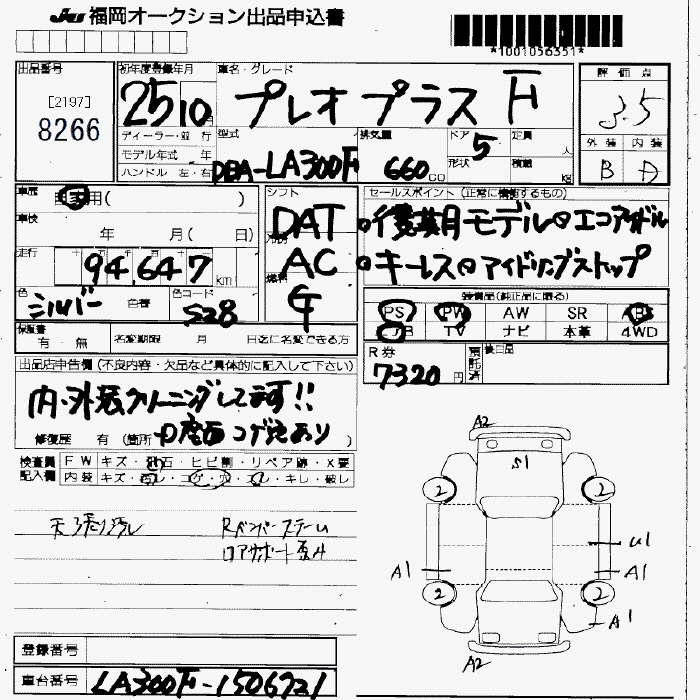 JU 福岡オークション出品申込書
*1001056351*
出品番号
[2197]
8266
初年度登録年月
25 10 月
車名・グレード
プレオプラス F
評価点
3.5
外装 内装
B D
ディーラー・並行
モデル年式 年
ハンドル 左・右
型式
DBA-LA300F
排気量
660 CC
ドア
5
形状
定員
人
積載
kg
車歴
自家用( )
車検
年 月( 日)
走行
94,647 km
色
シルバー
色替
色コード
S28
シフト
DAT
冷房
AC
燃料
G
セールスポイント(正常に機能するもの)
後期モデル エコアイドル
キーレス アイドリングストップ
装備品(純正品に限る)
PS PW AW SR AB
TV ナビ 本革 4WD
保証書
有・無
名変期限 月 日迄に名変できる方
R券
7320円
預託済
後日品
出品店申告欄(不良内容・欠品など具体的に記入して下さい)
内・外装クリーニングしてます!!
修復歴 有 (箇所
座面コゲ穴あり
検査員記入欄
FW キズ・飛石・ヒビ割・リペア跡・X要
内装 キズ・汚レ・コゲ・穴・スレ・キレ・破レ
天張り汚レ
Rバンパーステー歪ム
ロアサポート歪ム
A2
S1
2
2
U1
A1
A1
2
2
A1
A2
登録番号
車台番号
LA300F-1506721